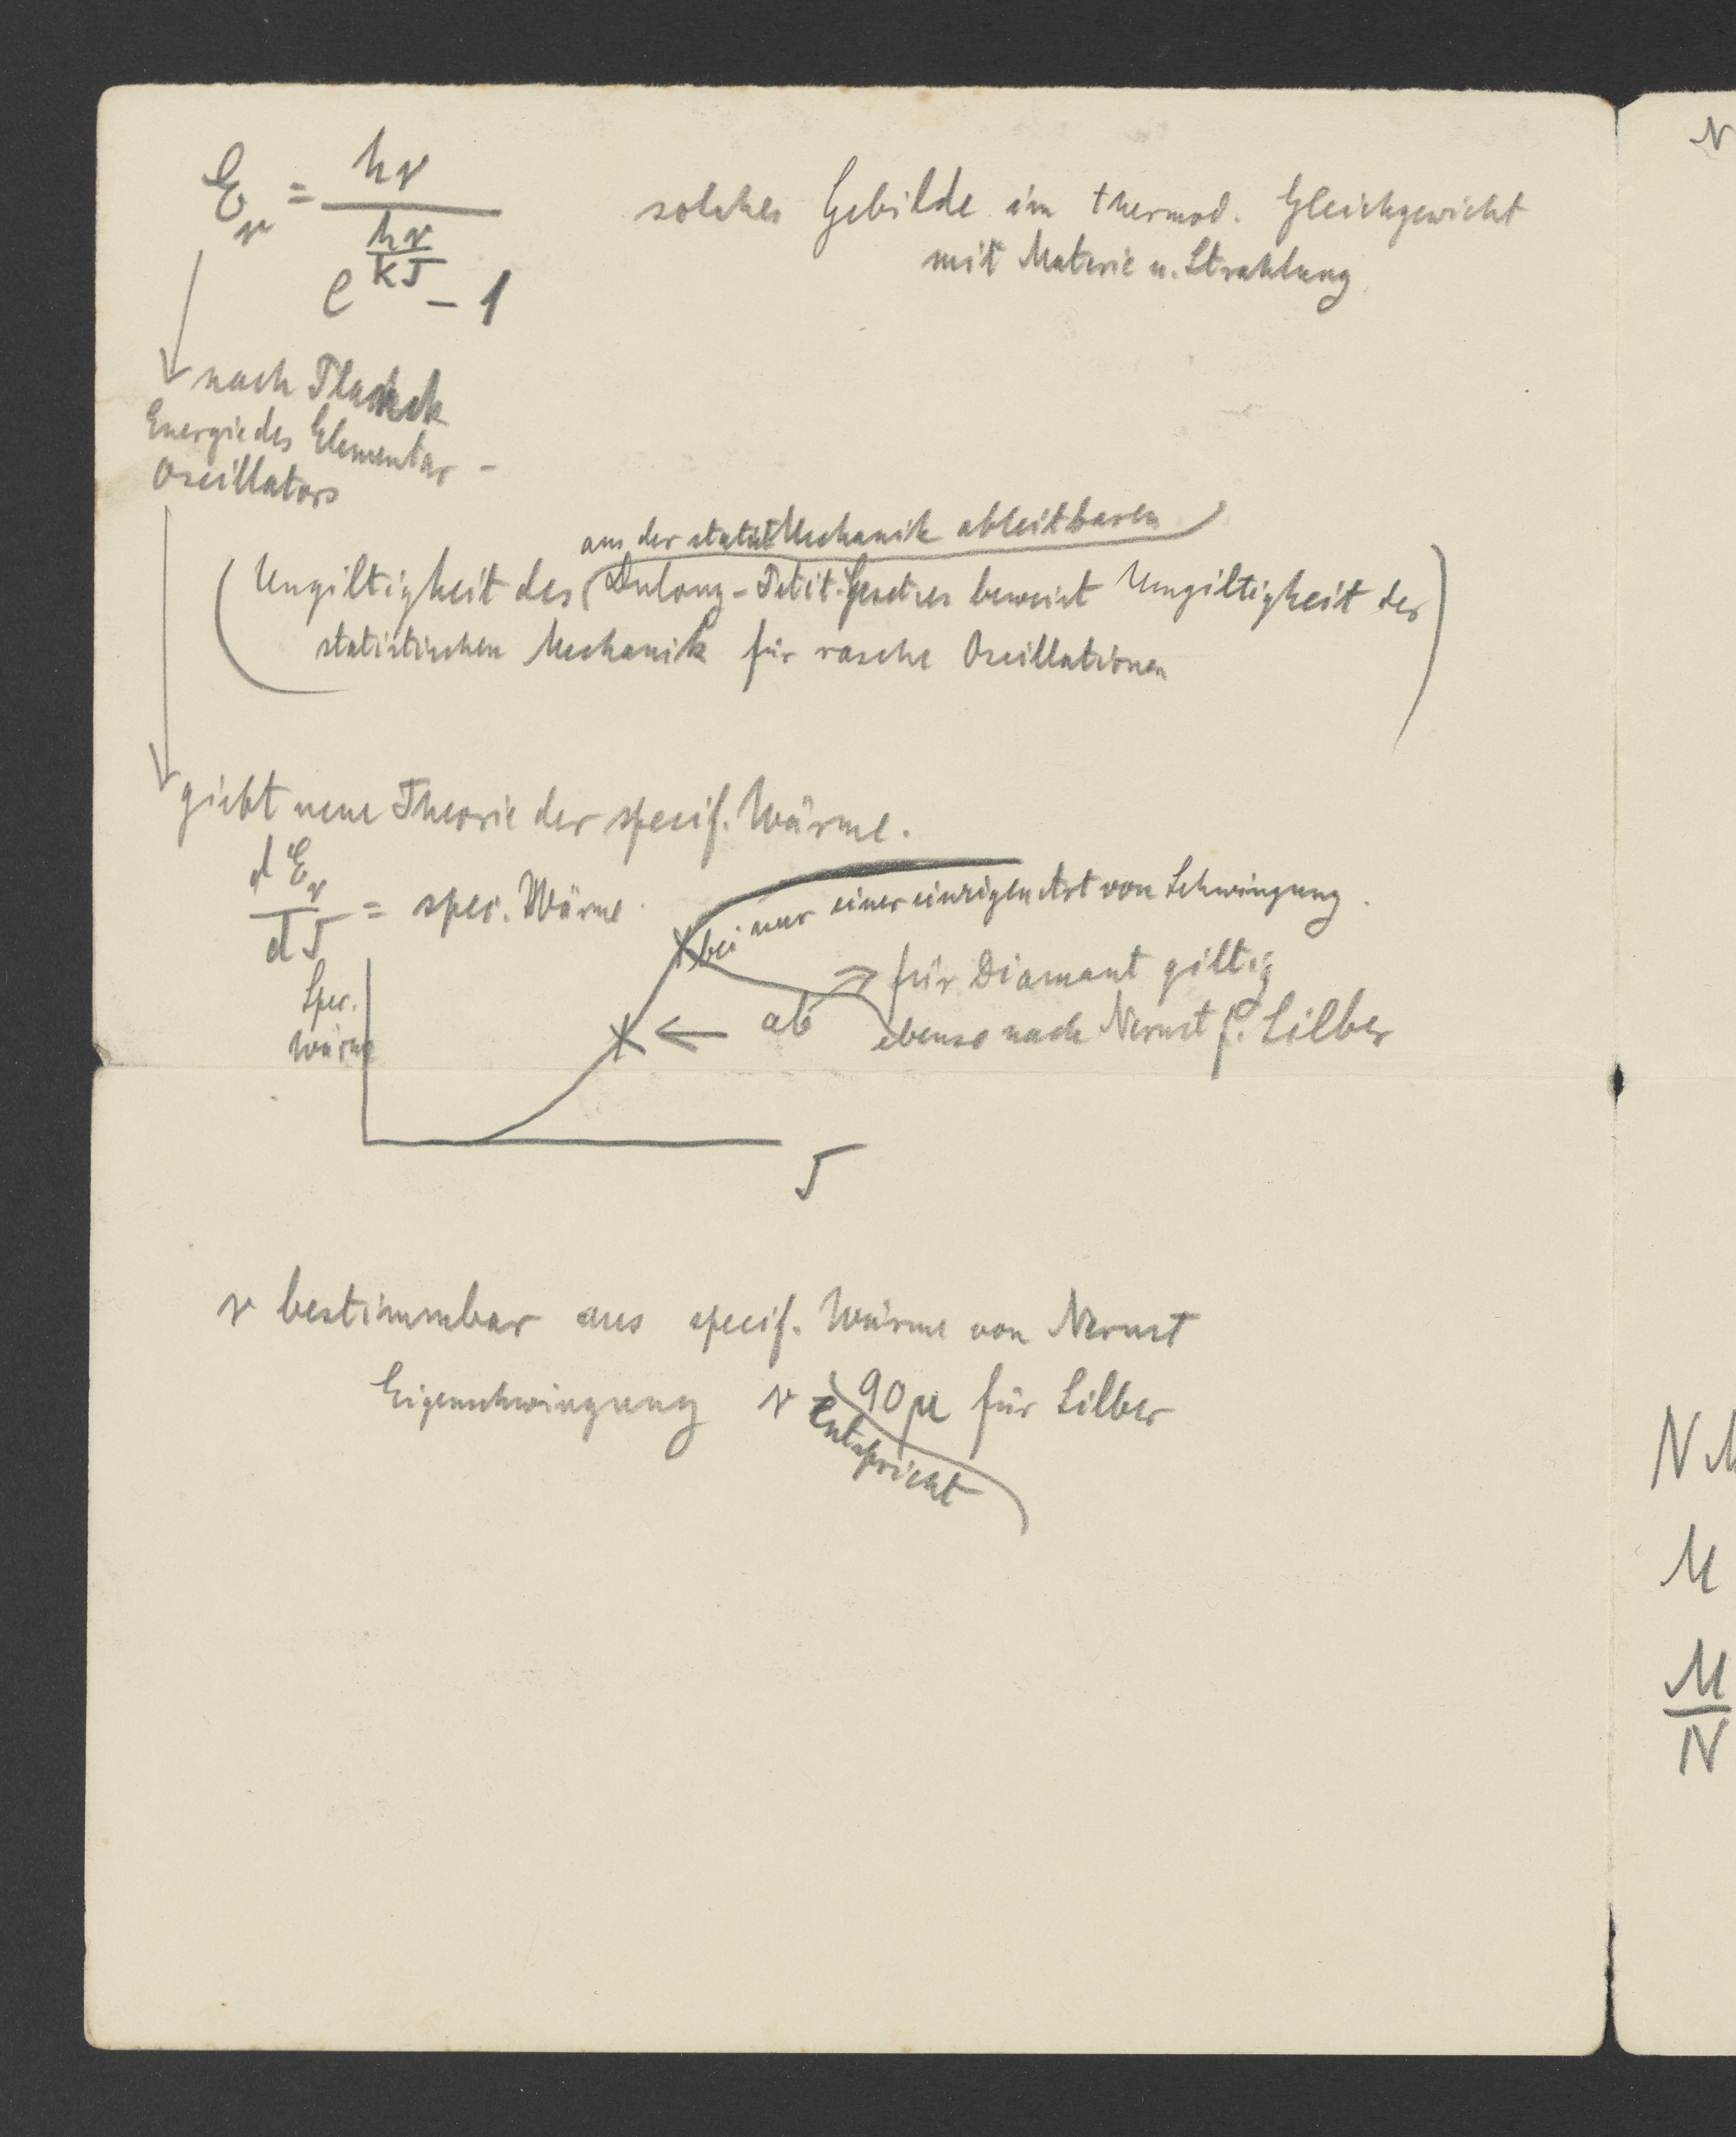 E_ν = hν / (e^{hν/kT} − 1)
solches Gebilde im thermod. Gleichgewicht
mit Materie u. Strahlung
nach Planck
Energie des Elementar-
Oscillators
aus der stat. Mechanik ableitbaren
(Ungiltigkeit des Dulong-Petit-Gesetzes beweist Ungiltigkeit der
statistischen Mechanik für rasche Oscillationen)
giebt neue Theorie der specif. Wärme.
dE_ν/dT = spec. Wärme.
bei nur einer einzigen Art von Schwingung.
Spec.
Wärme
ab für Diamant giltig
ebenso nach Nernst f. Silber
T
ν bestimmbar aus specif. Wärme von Nernst
Eigenschwingung ν 90μ für Silber
entspricht
N
N
M
M/N